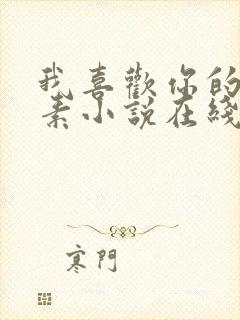 我喜歡你的
素小說在綫
寒門